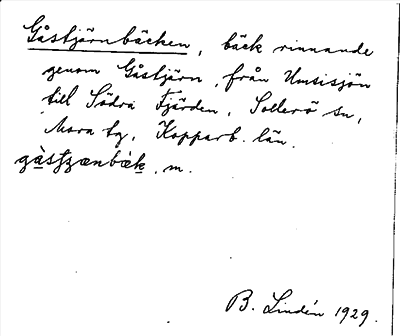 Gåstjärnbäcken, bäck rinnande
genom Gåstjärn, från Unsisjön
till Södra Fjärden, Sollerö sn,
Mora tg, Kopparb. län.
m.
B. Lindén 1929.